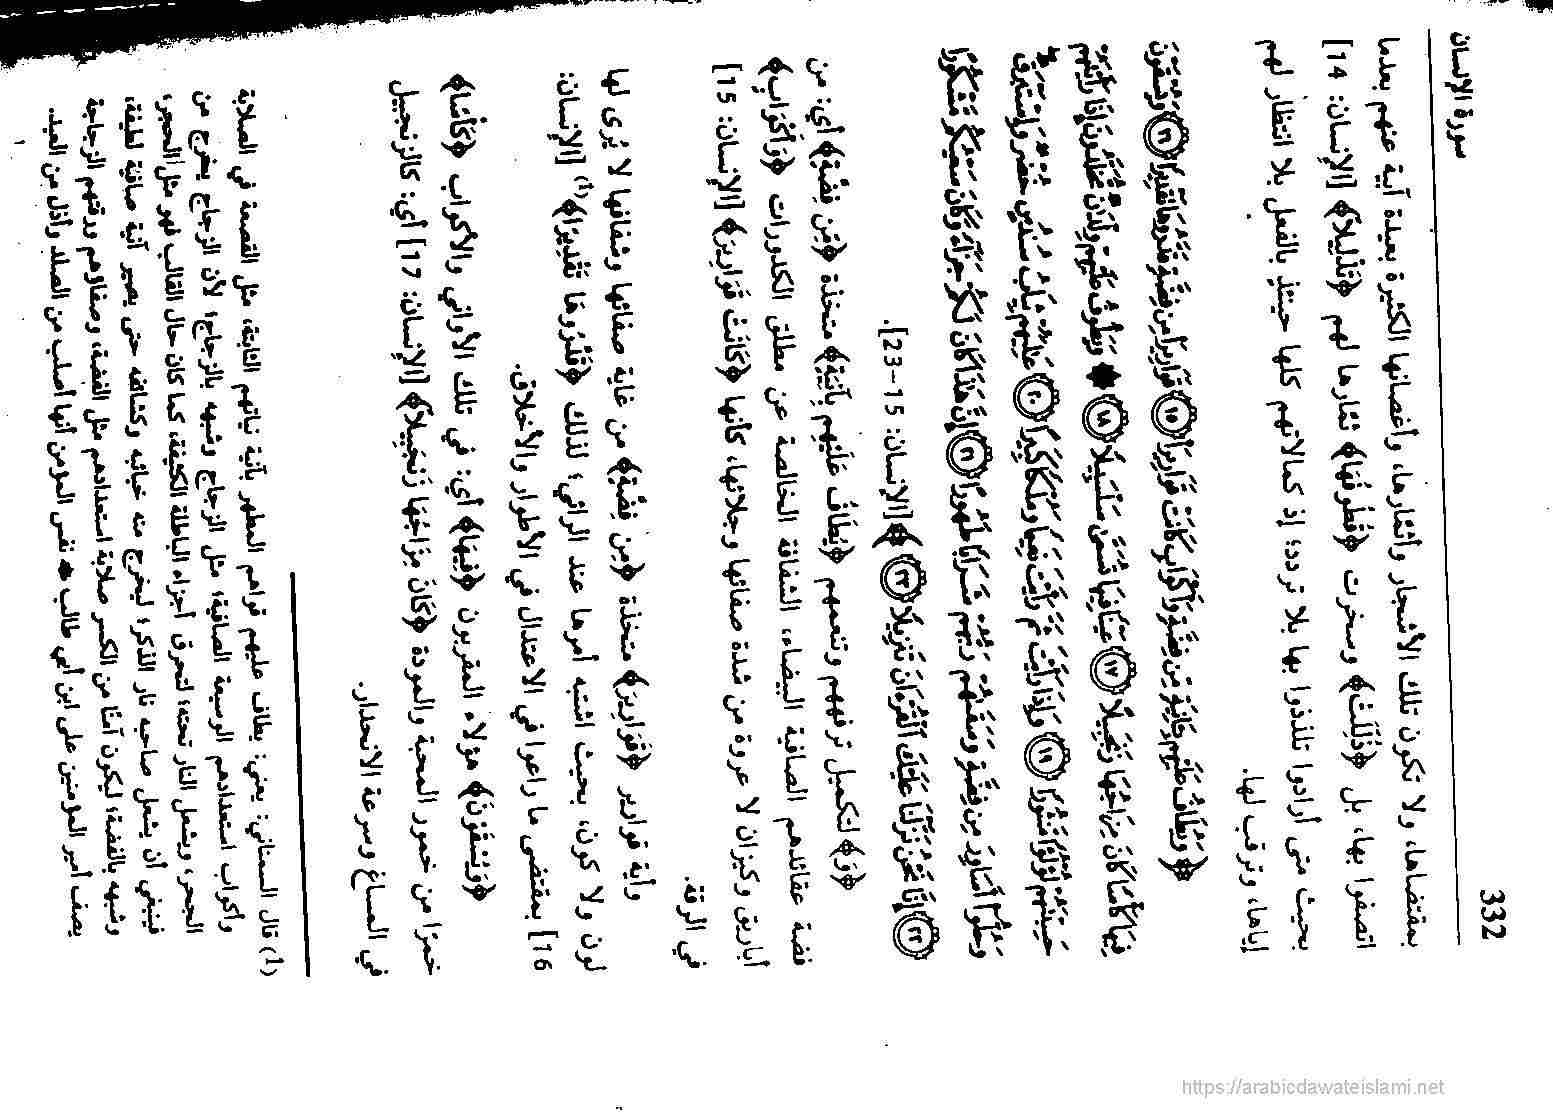 332
سورة الإنسان
بمقتضاها، ولا تكون تلك الأشجار وأثمارها، وأغصانها الكثيرة بعيدة آبية عنهم بعدما
اتصفوا بها، بل ﴿ذُلِّلَتْ﴾ وسخرت ﴿قُطُوفُهَا﴾ ثمارها لهم ﴿تَذْلِيلًا﴾ [الإنسان: 14]
بحيث متى أرادوا تلذذوا بها بلا تردد؛ إذ كمالاتهم كلها حينئذٍ بالفعل بلا انتظار لهم
إياها، وترقب لها.
﴿وَيُطَافُ عَلَيْهِم بِـَٔانِيَةٍ مِّن فِضَّةٍ وَأَكْوَابٍ كَانَتْ قَوَارِيرَا۠ ﴿١٥﴾ قَوَارِيرَا۟ مِن فِضَّةٍ قَدَّرُوهَا تَقْدِيرًا ﴿١٦﴾ وَيُسْقَوْنَ
فِيهَا كَأْسًا كَانَ مِزَاجُهَا زَنجَبِيلًا ﴿١٧﴾ عَيْنًا فِيهَا تُسَمَّىٰ سَلْسَبِيلًا ﴿١٨﴾ ۞ وَيَطُوفُ عَلَيْهِمْ وِلْدَانٌ مُّخَلَّدُونَ إِذَا رَأَيْتَهُمْ
حَسِبْتَهُمْ لُؤْلُؤًا مَّنثُورًا ﴿١٩﴾ وَإِذَا رَأَيْتَ ثَمَّ رَأَيْتَ نَعِيمًا وَمُلْكًا كَبِيرًا ﴿٢٠﴾ عَٰلِيَهُمْ ثِيَابُ سُندُسٍ خُضْرٌ وَإِسْتَبْرَقٌ
وَحُلُّوٓا۟ أَسَاوِرَ مِن فِضَّةٍ وَسَقَىٰهُمْ رَبُّهُمْ شَرَابًا طَهُورًا ﴿٢١﴾ إِنَّ هَٰذَا كَانَ لَكُمْ جَزَآءً وَكَانَ سَعْيُكُم مَّشْكُورًا
﴿٢٢﴾ إِنَّا نَحْنُ نَزَّلْنَا عَلَيْكَ ٱلْقُرْءَانَ تَنزِيلًا ﴿٢٣﴾﴾ [الإنسان: 15-23].
﴿وَ﴾ لتكميل ترفههم وتنعمهم ﴿يُطَافُ عَلَيْهِم بِآنِيَةٍ﴾ متخذة ﴿مِّن فِضَّةٍ﴾ أي: من
فضة عقائدهم الصافية البيضاء، الشفافة الخالصة عن مطلق الكدورات ﴿وَأَكْوَابٍ﴾
أباريق وكيزان لا عروة من شدة صفائها وجلائها، كأنها ﴿كَانَتْ قَوَارِيرَ﴾ [الإنسان: 15]
في الرقة.
وأية قوارير ﴿قَوَارِيرَ﴾ متخذة ﴿مِن فِضَّةٍ﴾ من غاية صفائها وشفافها لا يُرى لها
لون ولا كون، بحيث اشتبه أمرها عند الرائي؛ لذلك ﴿قَدَّرُوهَا تَقْدِيرًا﴾(1) [الإنسان:
16] بمقتضى ما راعوا في الاعتدال في الأطوار والأخلاق.
﴿وَيُسْقَوْنَ﴾ هؤلاء المقربون ﴿فِيهَا﴾ أي: في تلك الأواني والأكواب ﴿كَأْسًا﴾
خمرًا من خمور المحبة والمودة ﴿كَانَ مِزَاجُهَا زَنجَبِيلًا﴾ [الإنسان: 17] أي: كالزنجبيل
في المساغ وسرعة الانحدار.
(1) قال السمناني: يعني: يطاف عليهم قواهم المطهر بآنية نياتهم الثابتة، مثل القصعة في الصلابة
وأكواب استعدادهم الوسيعة الصافية؛ مثل الزجاج وشبهه بالزجاج؛ لأن الزجاج يخرج من
الحجر، ويشعل النار تحته؛ لتحرق أجزاءه الباطلة الكثيفة، كما كان حال القالب فهو مثل الحجر؛
فينبغي أن يشعل صاحبه نار الذكر؛ ليخرج منه خبائثه وكثافته حتى يصير آنية صافية لطيفة،
وشبهه بالفضة؛ ليكون آمنًا من الكسر صلابة استعدادهم مثل الفضة، وصفاؤهم ورقتهم الزجاجة
يصف أمير المؤمنين علي ابن أبي طالب نفس المؤمن أنها أصلب من الصلد وأذل من العبد.
https://arabicdawateislami.net